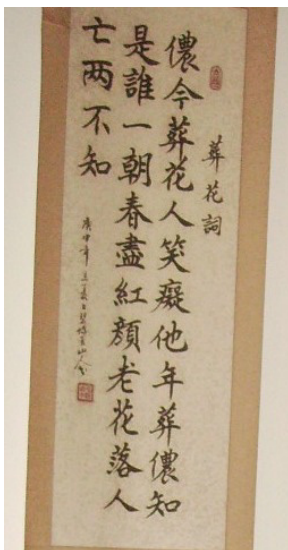 葬花詞
儂今葬花人笑癡他年葬儂知
是誰一朝春盡紅顏老花落人
亡两不知